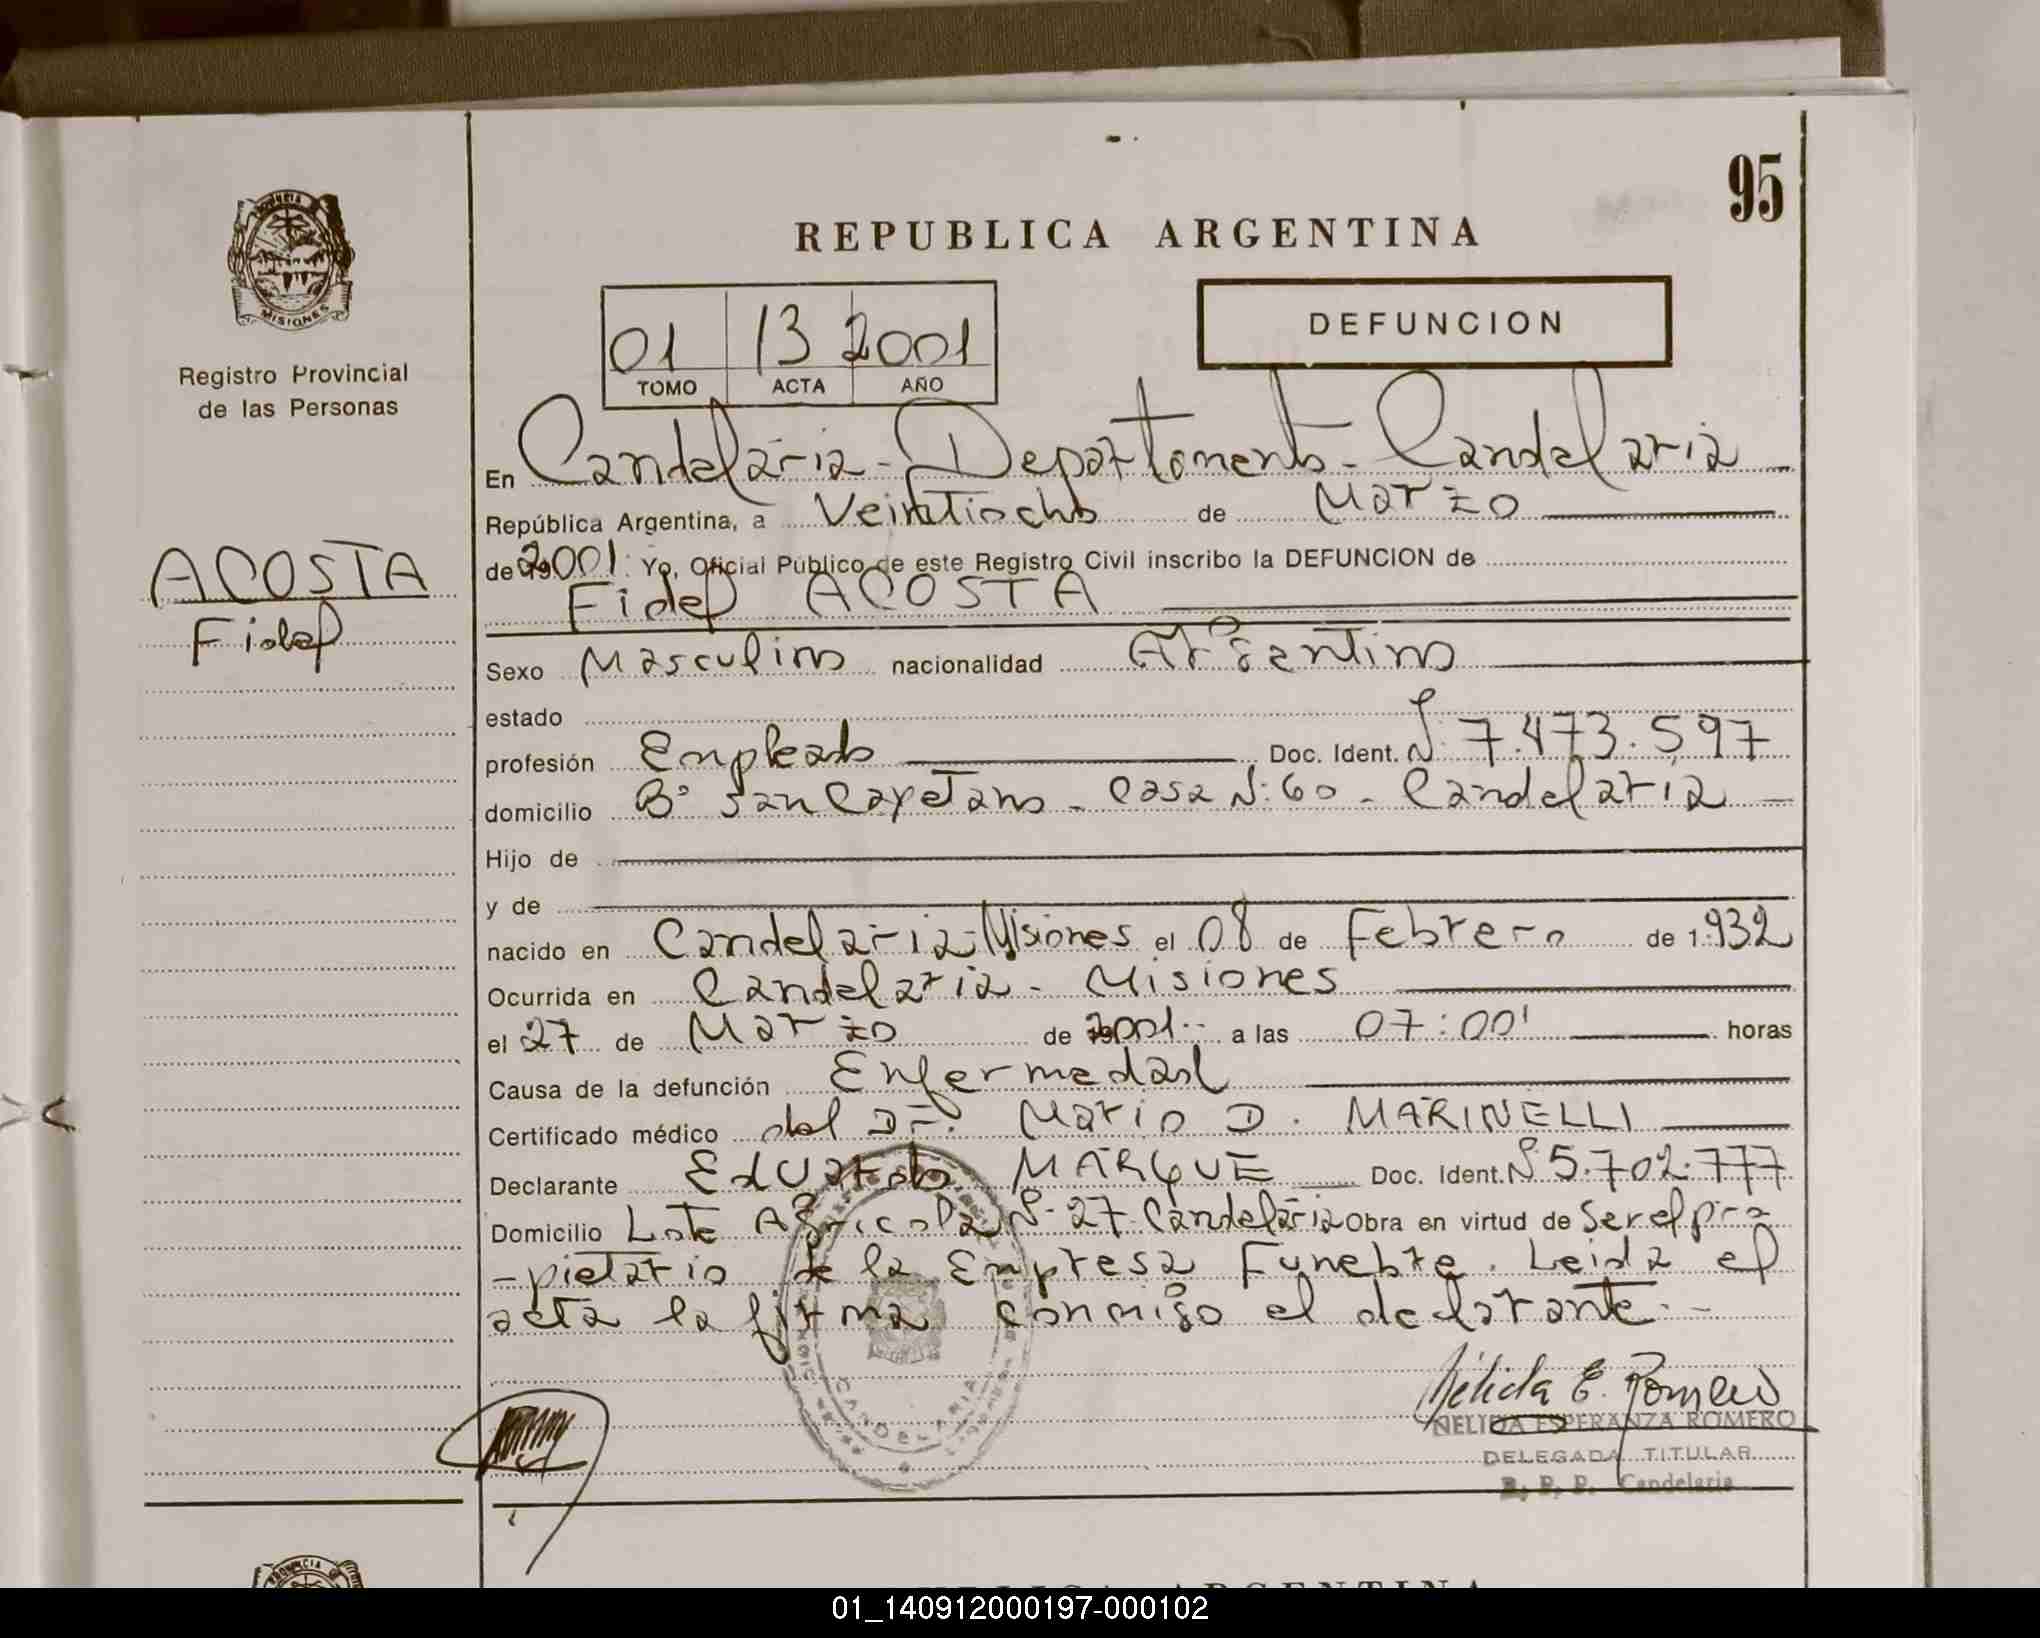 95
REPUBLICA ARGENTINA
PROVINCIA
MISIONES
Registro Provincial
de las Personas
01 13 2001
TOMO ACTA AÑO
DEFUNCION
En Candelaria - Departamento - Candelaria
República Argentina, a Veintiocho de Marzo
de 2001. Yo, Oficial Público de este Registro Civil inscribo la DEFUNCION de
Fidel ACOSTA
ACOSTA
Fidel
Sexo Masculino nacionalidad Argentino
estado
profesión Empleado Doc. Ident. Nº 7.473.597
domicilio Bº San Cayetano - Casa Nº: 60 - Candelaria -
Hijo de
y de
nacido en Candelaria - Misiones el 08 de Febrero de 1.932
Ocurrida en Candelaria - Misiones
el 27 de Marzo de 2001.- a las 07:00' horas
Causa de la defunción Enfermedad
Certificado médico del Dr. Mario D. MARINELLI
Declarante Eduardo MARQUE Doc. Ident. Nº 5.702.777
Domicilio Lote Agricola Nº 27 - Candelaria Obra en virtud de Ser el pro
-pietario de la Empresa Funebre. Leida el
acta la firma conmigo el declarante.-
CANDELARIA
Nélida E. Romero
NELIDA ESPERANZA ROMERO
DELEGADA TITULAR
R. P. P. Candelaria
PROVINCIA
REPUBLICA ARGENTINA
01_140912000197-000102